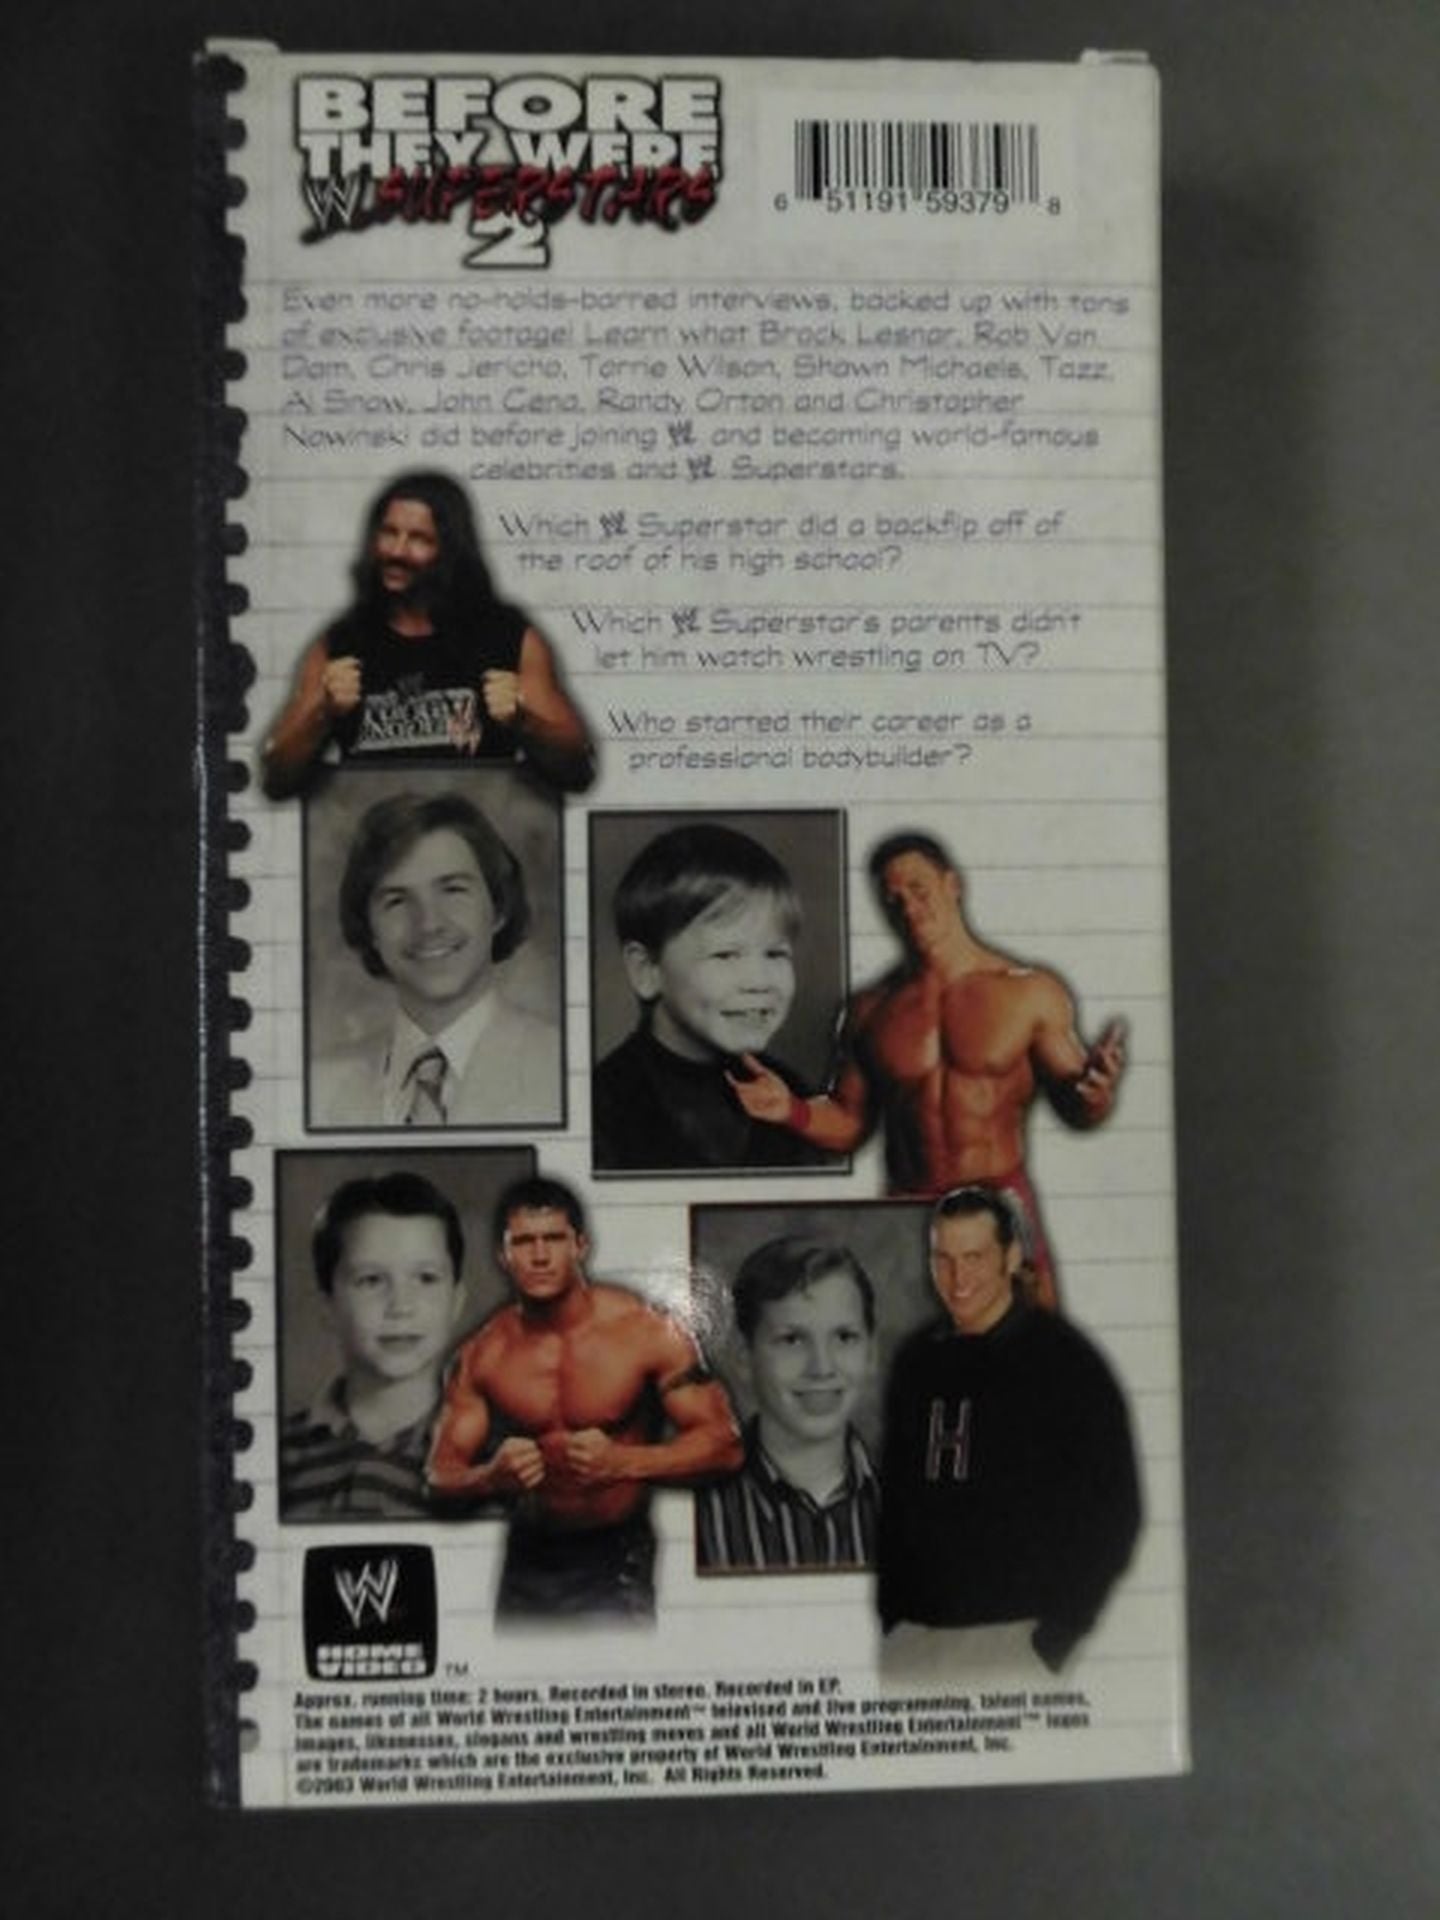 BEFORE
THEY WERE
W SUPERSTARS
2
6 51191 59379 8
Even more no-holds-barred interviews, backed up with tons
of exclusive footage! Learn what Brock Lesnar, Rob Van
Dam, Chris Jericho, Torrie Wilson, Shawn Michaels, Tazz,
Al Snow, John Cena, Randy Orton and Christopher
Nowinski did before joining W and becoming world-famous
celebrities and W Superstars.
Which W Superstar did a backflip off of
the roof of his high school?
Which W Superstar's parents didn't
let him watch wrestling on TV?
Who started their career as a
professional bodybuilder?
H
W
HOME
VIDEO TM
Approx. running time: 2 hours. Recorded in stereo. Recorded in EP.
The names of all World Wrestling Entertainment™ televised and live programming, talent names,
images, likenesses, slogans and wrestling moves and all World Wrestling Entertainment™ logos
are trademarks which are the exclusive property of World Wrestling Entertainment, Inc.
©2003 World Wrestling Entertainment, Inc. All Rights Reserved.